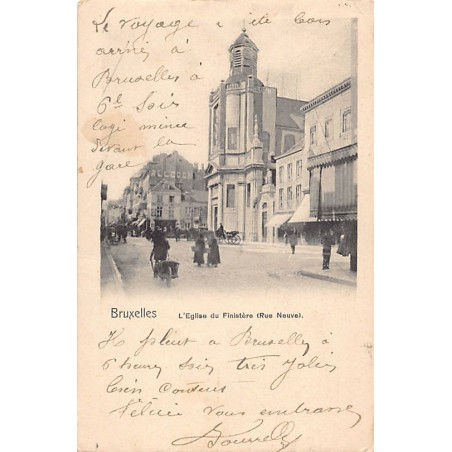 Le voyage a été bon
arrivés à
Bruxelles à
6h Soir
logi même
devant la
gare
Bruxelles
L'Eglise du Finistère (Rue Neuve).
Il pleut a Bruxelles à
6 heures Soir très Jolie
bien contens
vous embrasse